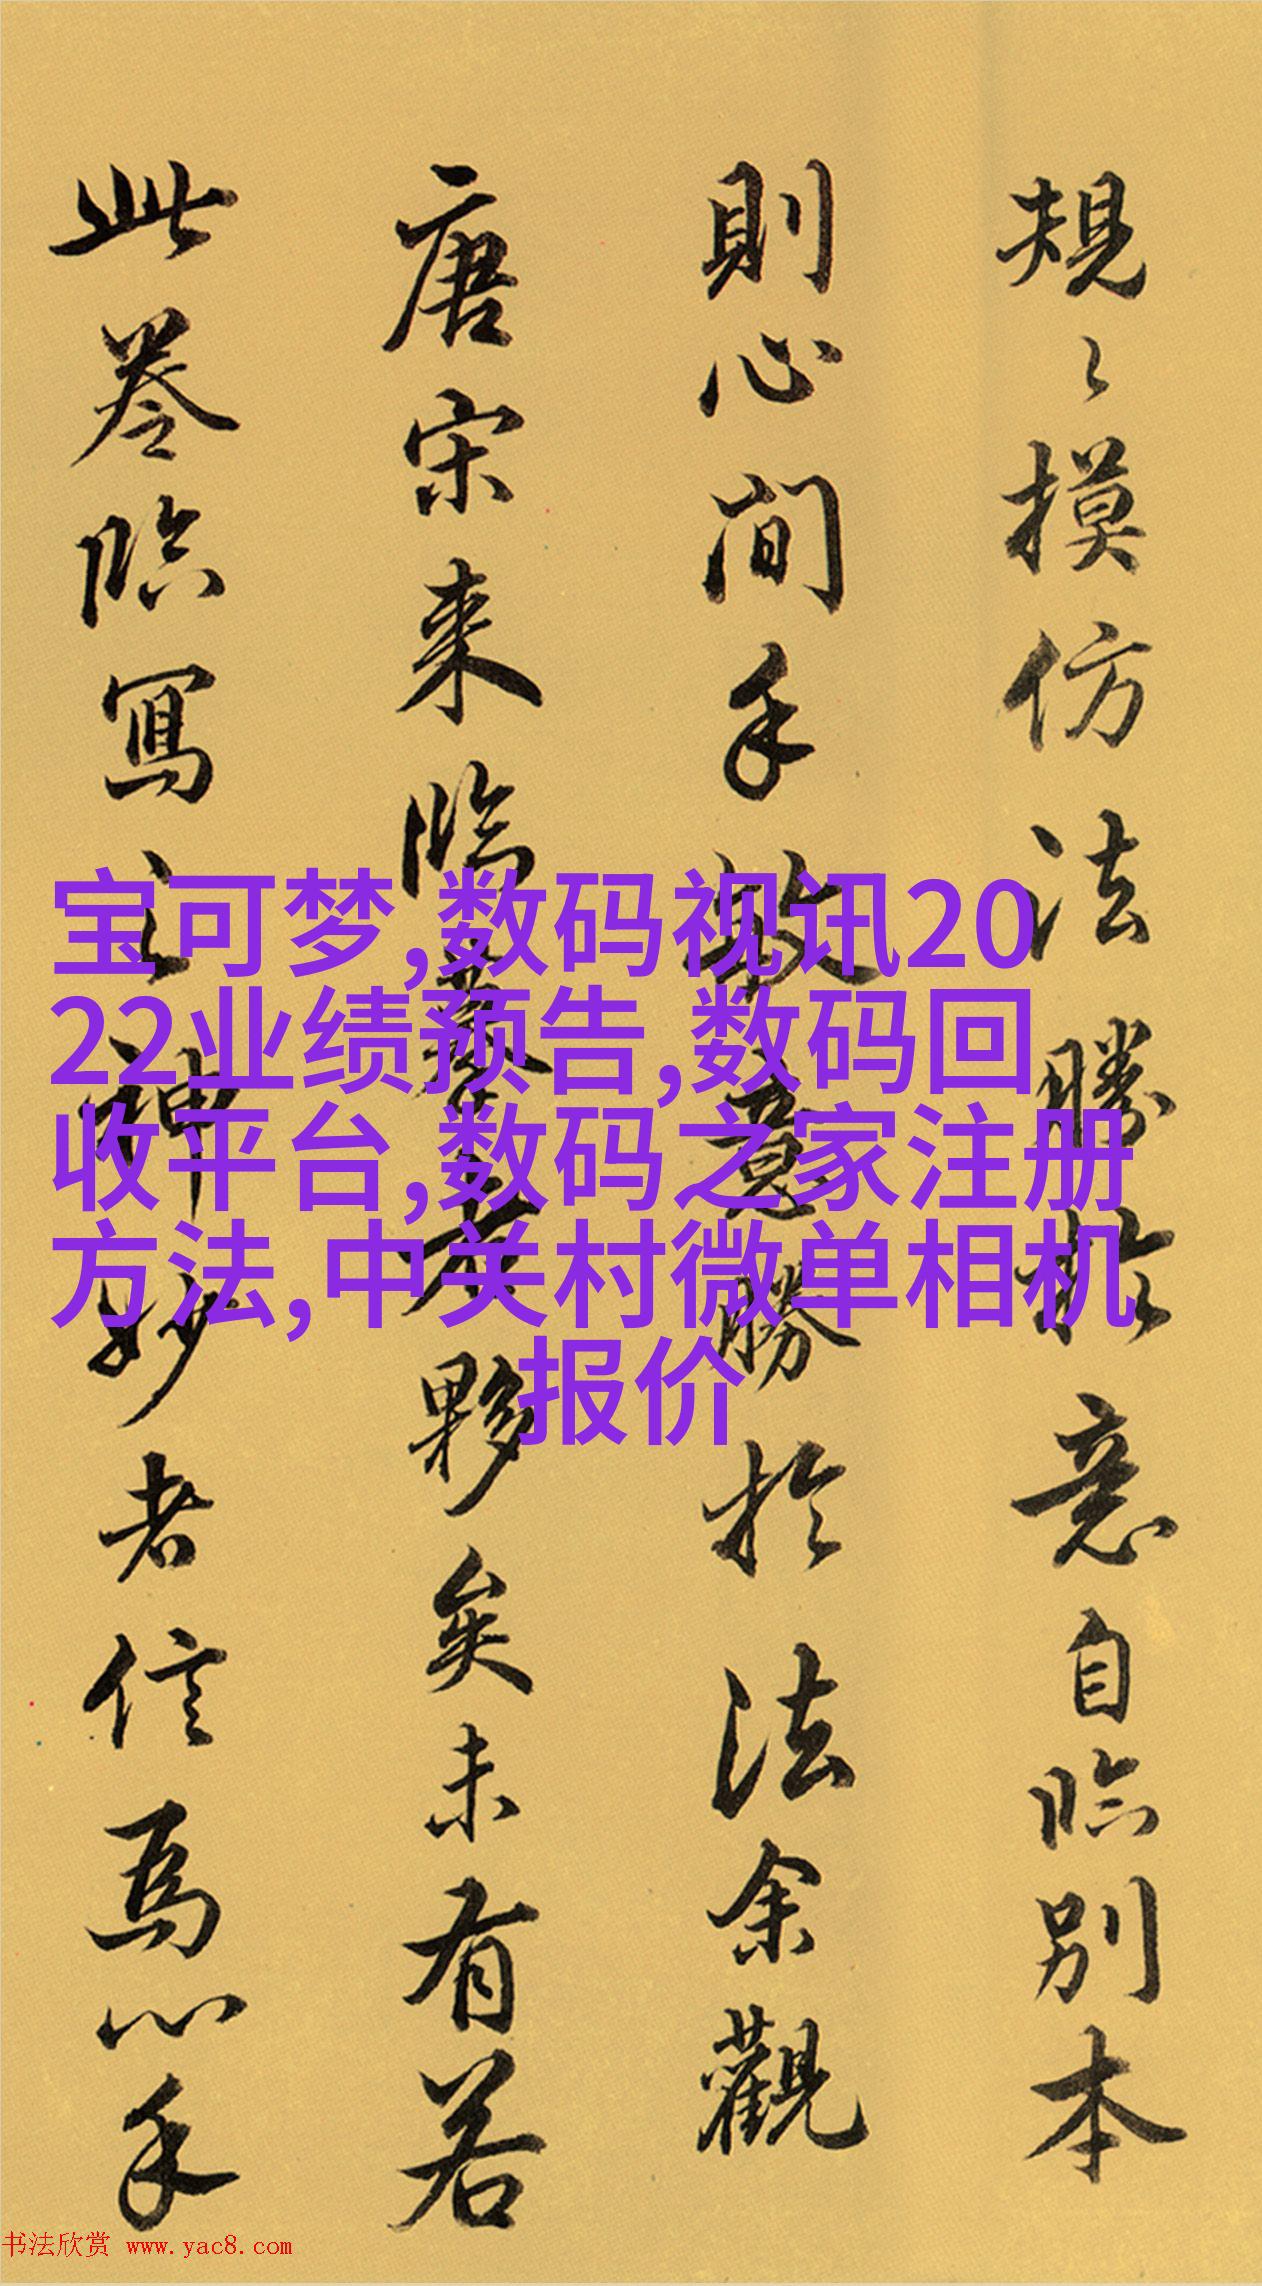 規〻摸仿法勝於意自臨别本
則心間手敏意勝於法余觀
唐宋来臨摹者夥矣未有若
此卷臨寫之神妙者信焉心手
宝可梦,数码视讯20
22业绩预告,数码回
收平台,数码之家注册
方法,中关村微单相机
报价
书法欣赏 www.yac8.com